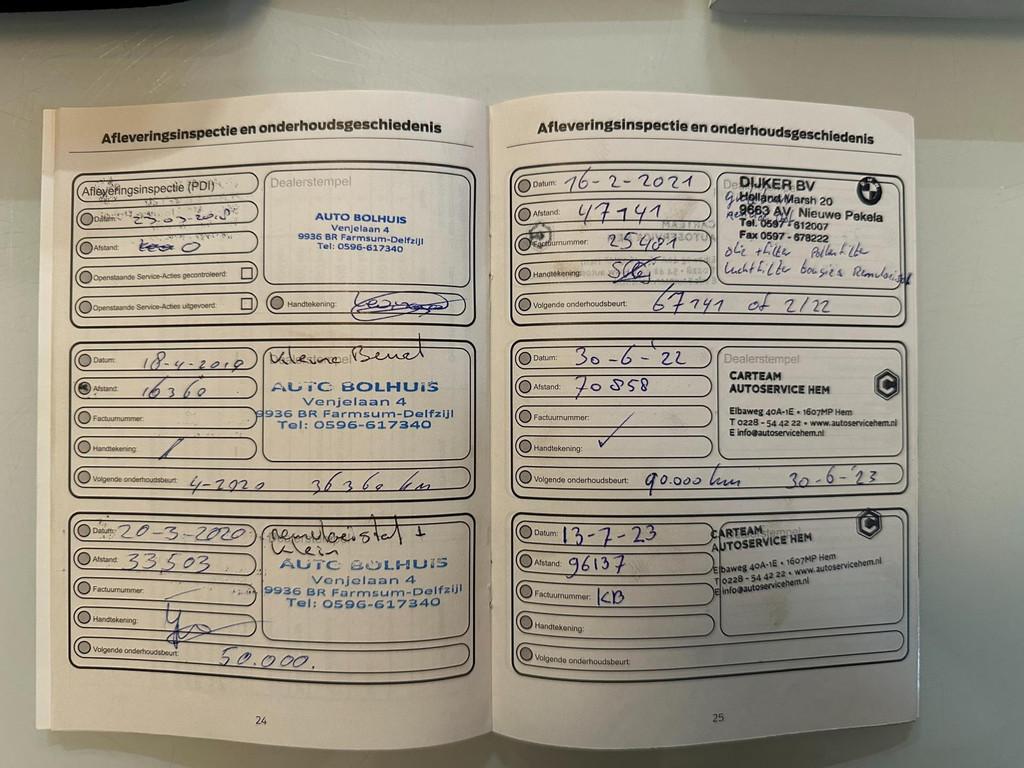 Afleveringsinspectie en onderhoudsgeschiedenis
Afleveringsinspectie (PDI)
Datum: 23-03-2018
Afstand: 0
Openstaande Service-Acties gecontroleerd:
Openstaande Service-Acties uitgevoerd:
Dealerstempel
AUTO BOLHUIS
Venjelaan 4
9936 BR Farmsum-Delfzijl
Tel: 0596-617340
Handtekening:
Datum: 18-4-2019
Afstand: 16360
Factuurnummer:
Handtekening:
Kleine Beurt
AUTO BOLHUIS
Venjelaan 4
9936 BR Farmsum-Delfzijl
Tel: 0596-617340
Volgende onderhoudsbeurt: 4-2020 36360 km
Datum: 20-3-2020
Afstand: 33503
Factuurnummer:
Handtekening:
remvloeistof +
klein
AUTO BOLHUIS
Venjelaan 4
9936 BR Farmsum-Delfzijl
Tel: 0596-617340
Volgende onderhoudsbeurt: 50.000.
24
Afleveringsinspectie en onderhoudsgeschiedenis
Datum: 16-2-2021
Afstand: 47141
Factuurnummer: 25481
Handtekening:
DIJKER BV
Holland Marsh 20
9663 AV Nieuwe Pekela
Tel. 0597 - 612007
Fax 0597 - 678222
olie + filter Pollenfilter
luchtfilter bougies Remvloeistof
Volgende onderhoudsbeurt: 67141 of 2/22
Datum: 30-6-'22
Afstand: 70858
Factuurnummer:
Handtekening:
Dealerstempel
CARTEAM
AUTOSERVICE HEM
Elbaweg 40A-1E • 1607MP Hem
T 0228 - 54 42 22 • www.autoservicehem.nl
E info@autoservicehem.nl
Volgende onderhoudsbeurt: 90.000 km 30-6-'23
Datum: 13-7-23
Afstand: 96137
Factuurnummer: KB
Handtekening:
CARTEAM
AUTOSERVICE HEM
Elbaweg 40A-1E • 1607MP Hem
T 0228 - 54 42 22 • www.autoservicehem.nl
E info@autoservicehem.nl
Volgende onderhoudsbeurt:
25